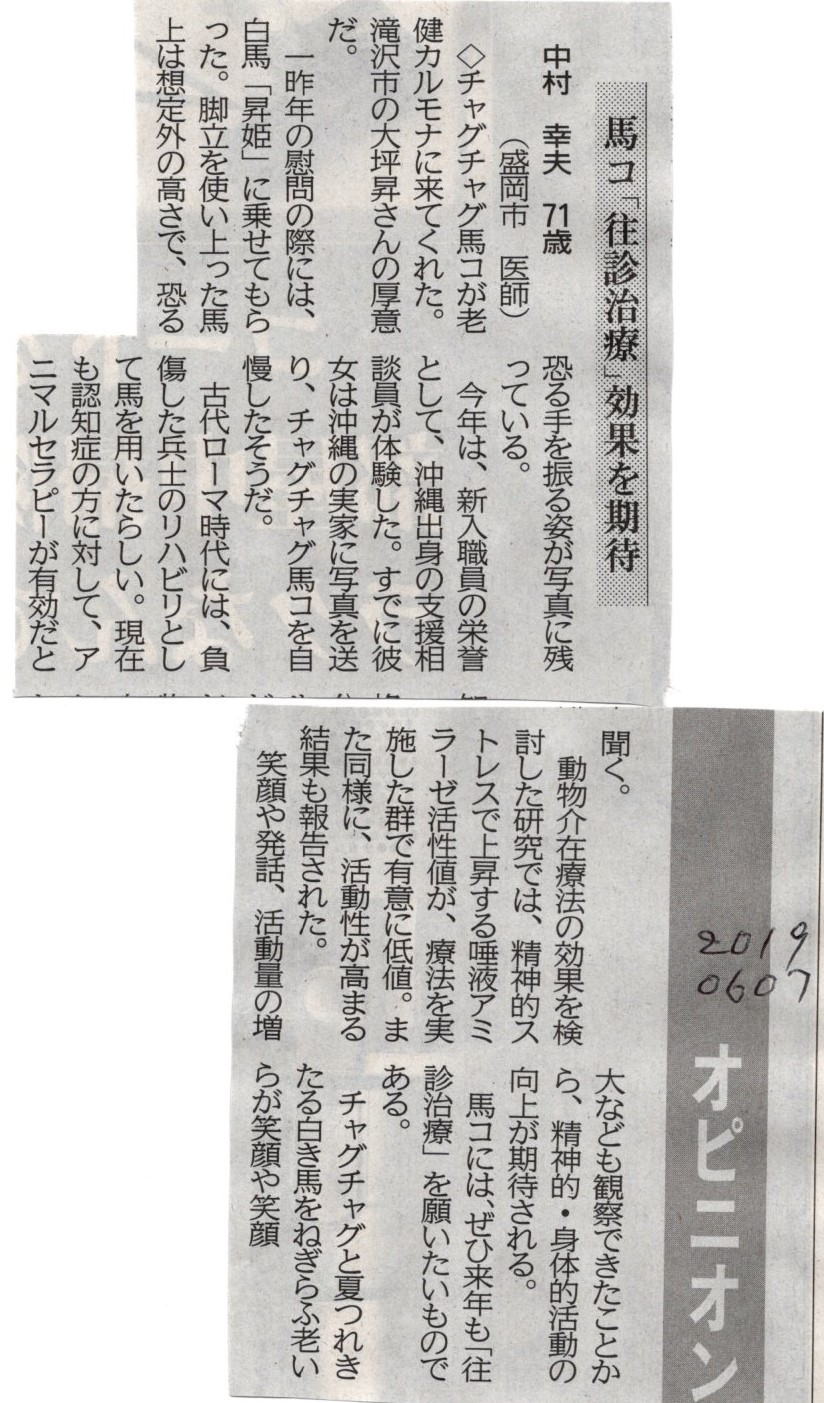 馬コ「往診治療」効果を期待
中村 幸夫 71歳
(盛岡市 医師)
◇チャグチャグ馬コが老
健カルモナに来てくれた。
滝沢市の大坪昇さんの厚意
だ。
一昨年の慰問の際には、
白馬「昇姫」に乗せてもら
った。脚立を使い上った馬
上は想定外の高さで、恐る
恐る手を振る姿が写真に残
っている。
今年は、新入職員の栄誉
として、沖縄出身の支援相
談員が体験した。すでに彼
女は沖縄の実家に写真を送
り、チャグチャグ馬コを自
慢したそうだ。
古代ローマ時代には、負
傷した兵士のリハビリとし
て馬を用いたらしい。現在
も認知症の方に対して、ア
ニマルセラピーが有効だと
聞く。
動物介在療法の効果を検
討した研究では、精神的ス
トレスで上昇する唾液アミ
ラーゼ活性値が、療法を実
施した群で有意に低値。ま
た同様に、活動性が高まる
結果も報告された。
笑顔や発話、活動量の増
大なども観察できたことか
ら、精神的・身体的活動の
向上が期待される。
馬コには、ぜひ来年も「往
診治療」を願いたいもので
ある。
チャグチャグと夏つれき
たる白き馬をねぎらふ老い
らが笑顔や笑顔
2019
0607
オピニオン